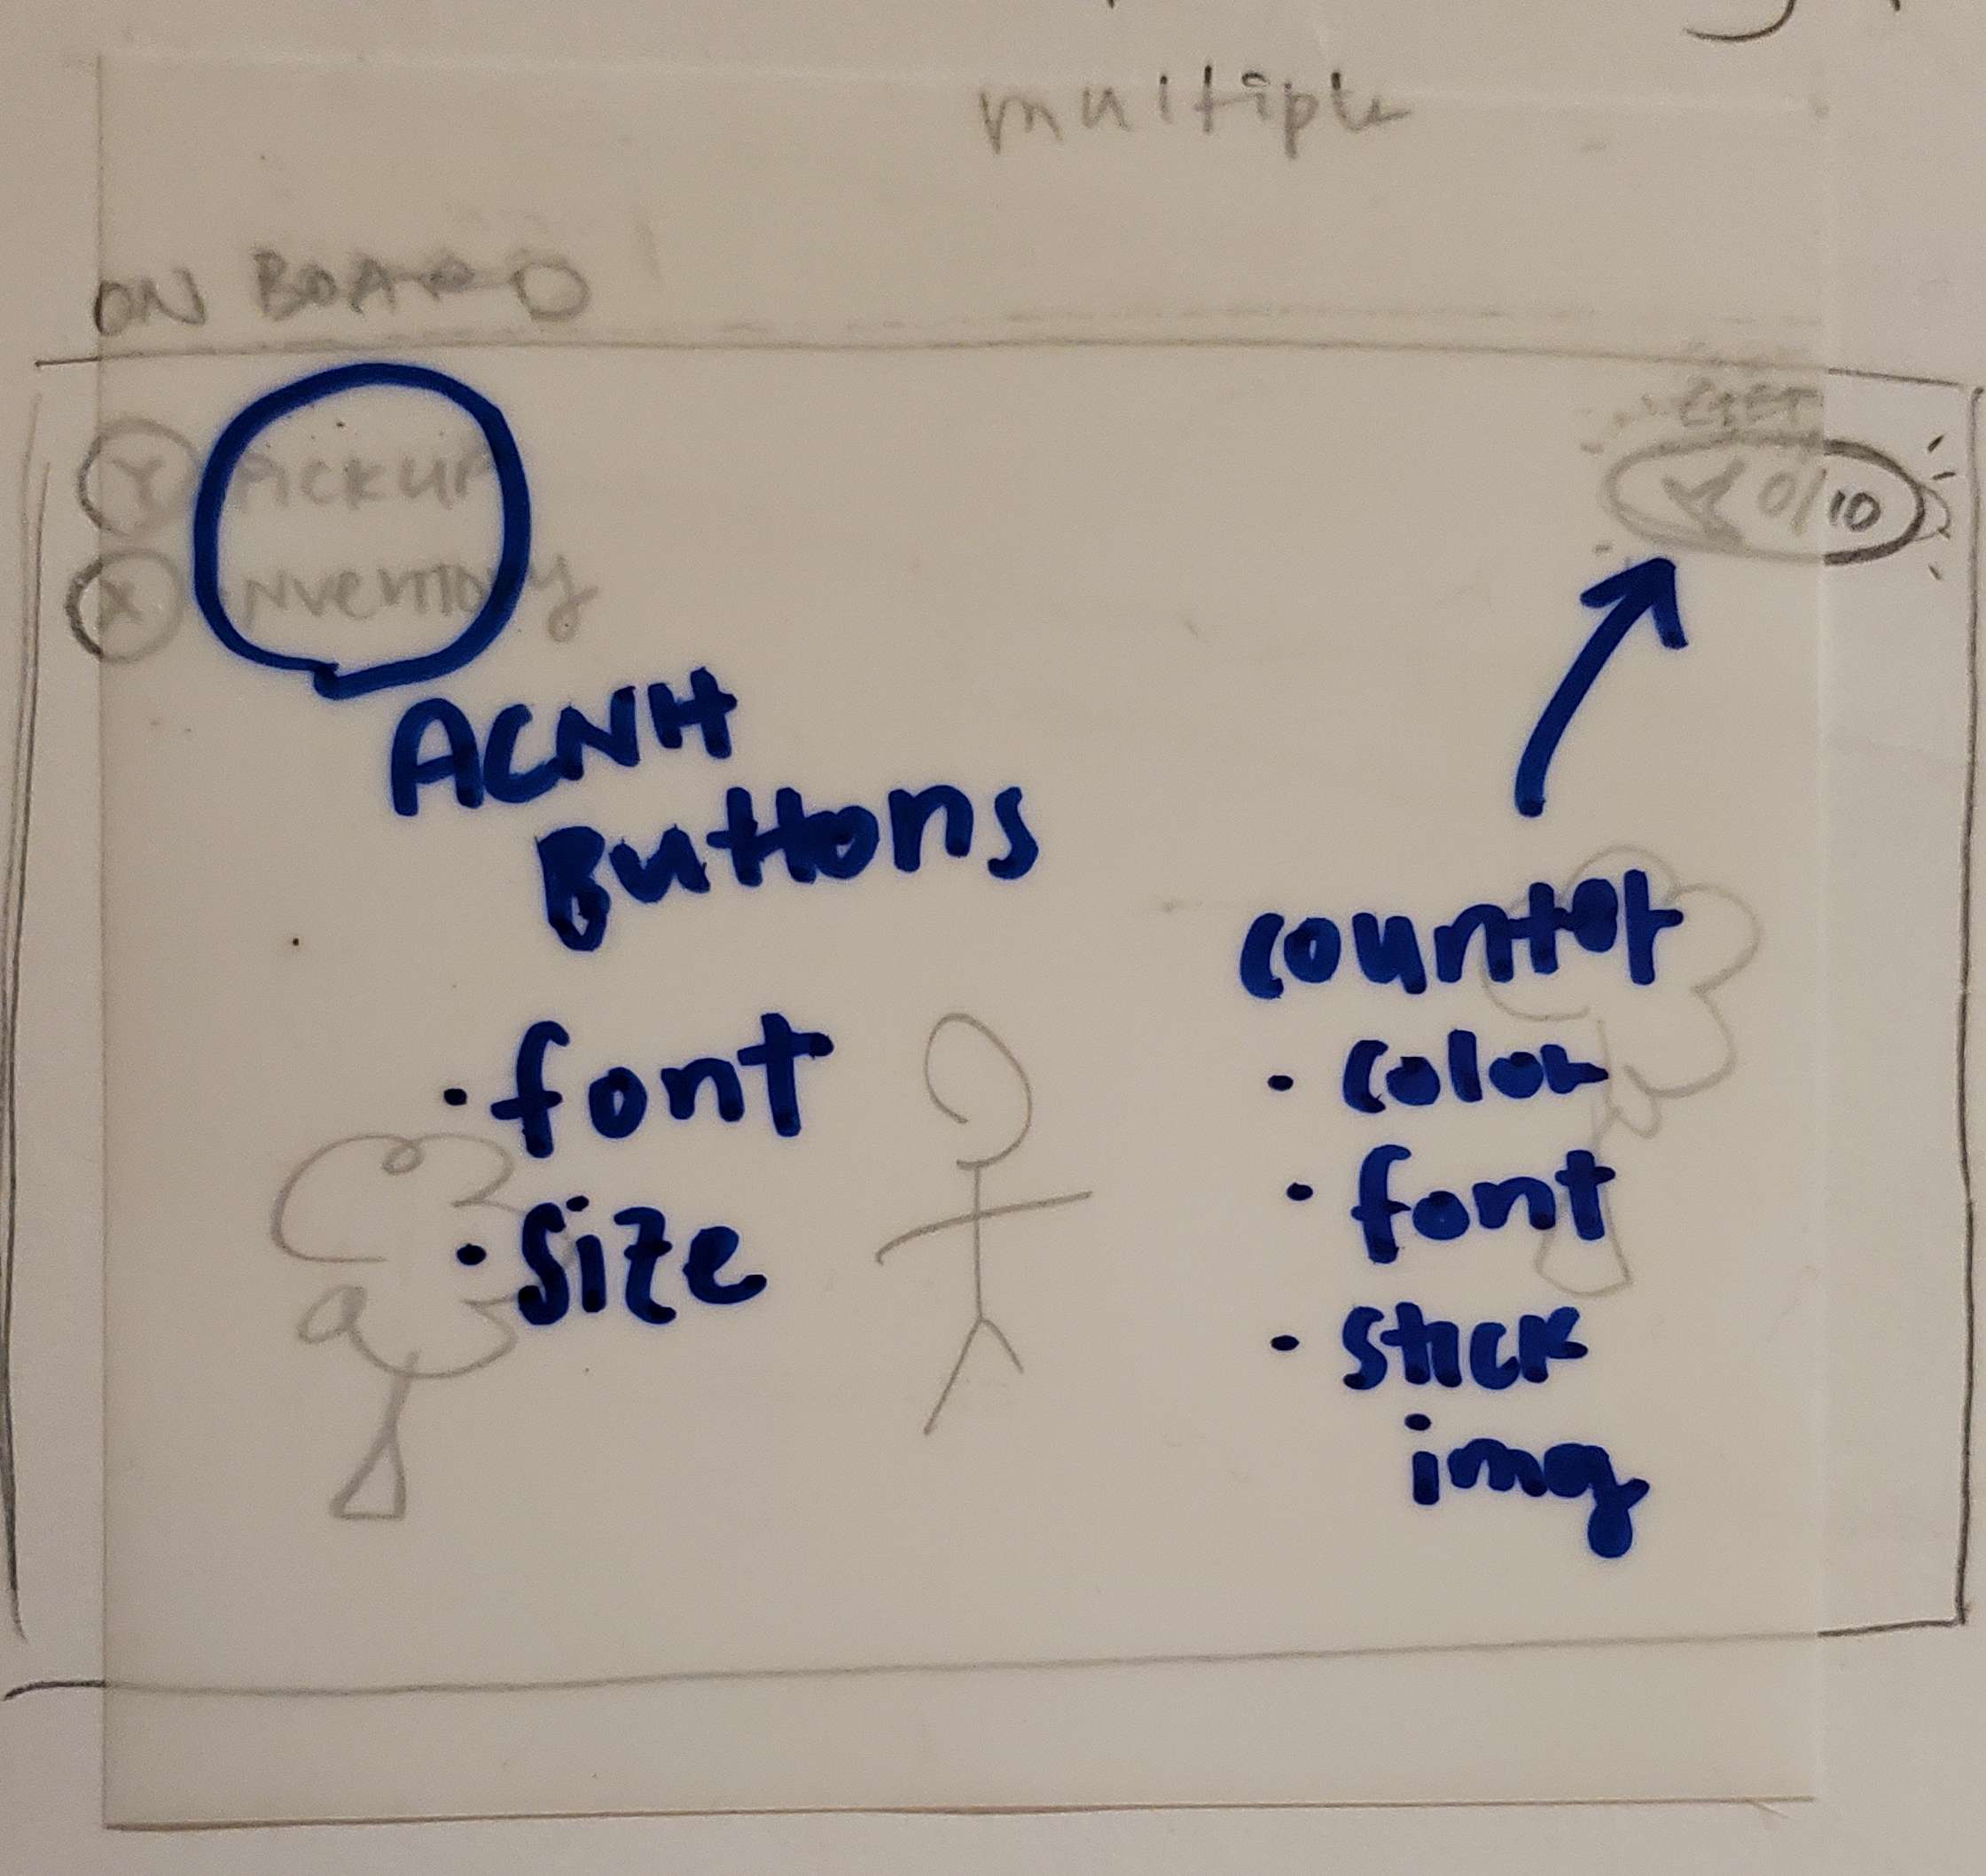 multiple
ON BOARD
Y PICKUP
X INVENTORY
0/10
ACNH
Buttons
• font
• size
counter
• color
• font
• stick
img